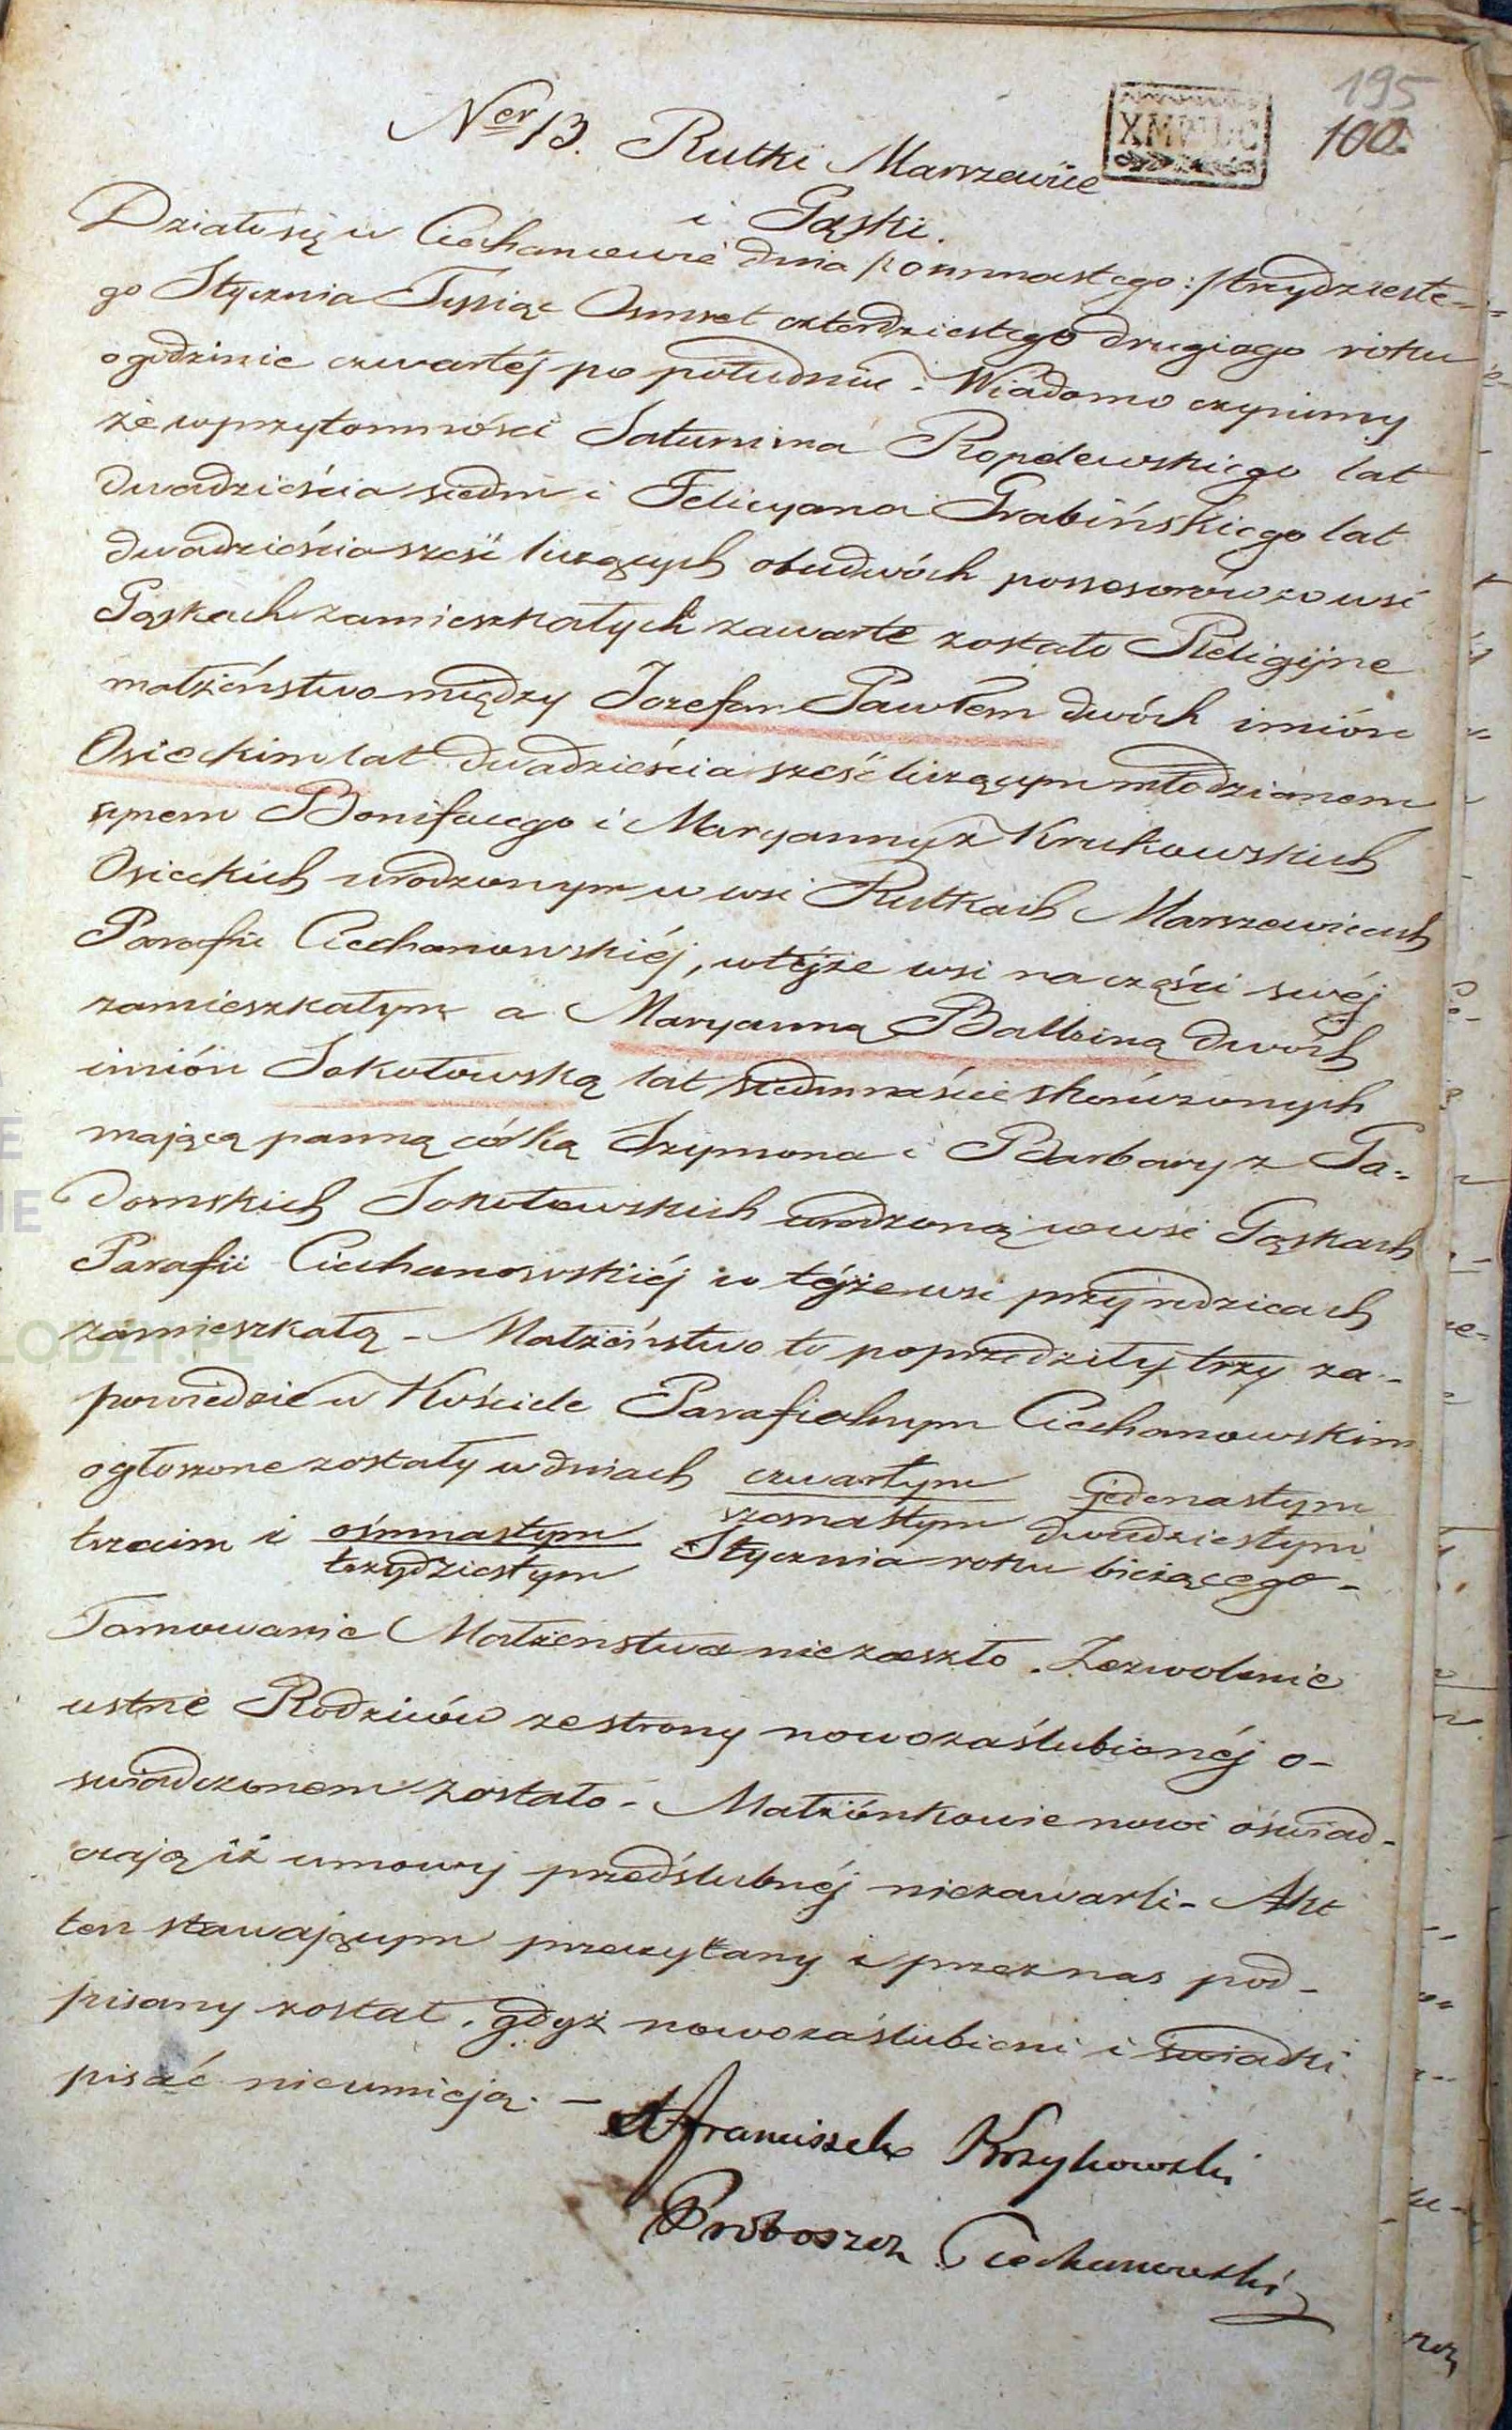 195
100.
Ner 13. Rutki Marszewice
i Gąski.
Działo się w Ciechanowie dnia /: osmnastego :/ trzydzieste-
go Stycznia Tysiąc Osmset czterdziestego drugiego roku
o godzinie czwartéj po południu. Wiadomo czyniemy
że w przytomności Saturnina Ropelewskiego lat
dwadzieścia siedm i Felicyana Grabińskiego lat
dwadzieścia sześć liczących obudwóch possesorów we wsi
Gąskach zamieszkałych zawarte zostało Religijne
małżeństwo między Jozefem Pawłem dwóch imion
Osieckim lat dwadzieścia sześć liczącym młodzianem
synem Bonifacego i Maryanny z Krukowskich
Osieckich urodzonym w wsi Rutkach Marszewicach
Parafii Ciechanowskiéj, w téjże wsi na części swéj
zamieszkałym a Maryanną Balbiną dwoch
imión Sokołowską lat siedmnaście skończonych
mającą panną córką Szymona i Barbary z Ga-
domskich Sokołowskich urodzoną we wsi Gąskach
Parafii Ciechanowskiéj w téjże wsi przy rodzicach
zamieszkałą - Małżeństwo to poprzedziły trzy za-
powiedzie w Kościele Parafialnym Ciechanowskim
ogłoszone zostały w dniach czwartym jedenastym
szesnastym dwudziestym
trzecim i ośmnastym Stycznia roku bieżącego -
trzydziestym
Tamowanie Małżenstwa nie zaszło. Zezwolenie
ustne Rodziców ze strony nowozaślubionéj o-
swiadczonem zostało - Małżónkowie nowi oświad-
czają iż umowy przedślubnéj niezawarli - Akt
ten stawającym przeczytany i przez nas pod-
pisany został, gdyż nowozaślubieni i świadki
pisać nieumieją. -
X Franciszek Krzykowski
Proboszcz Ciechanowski